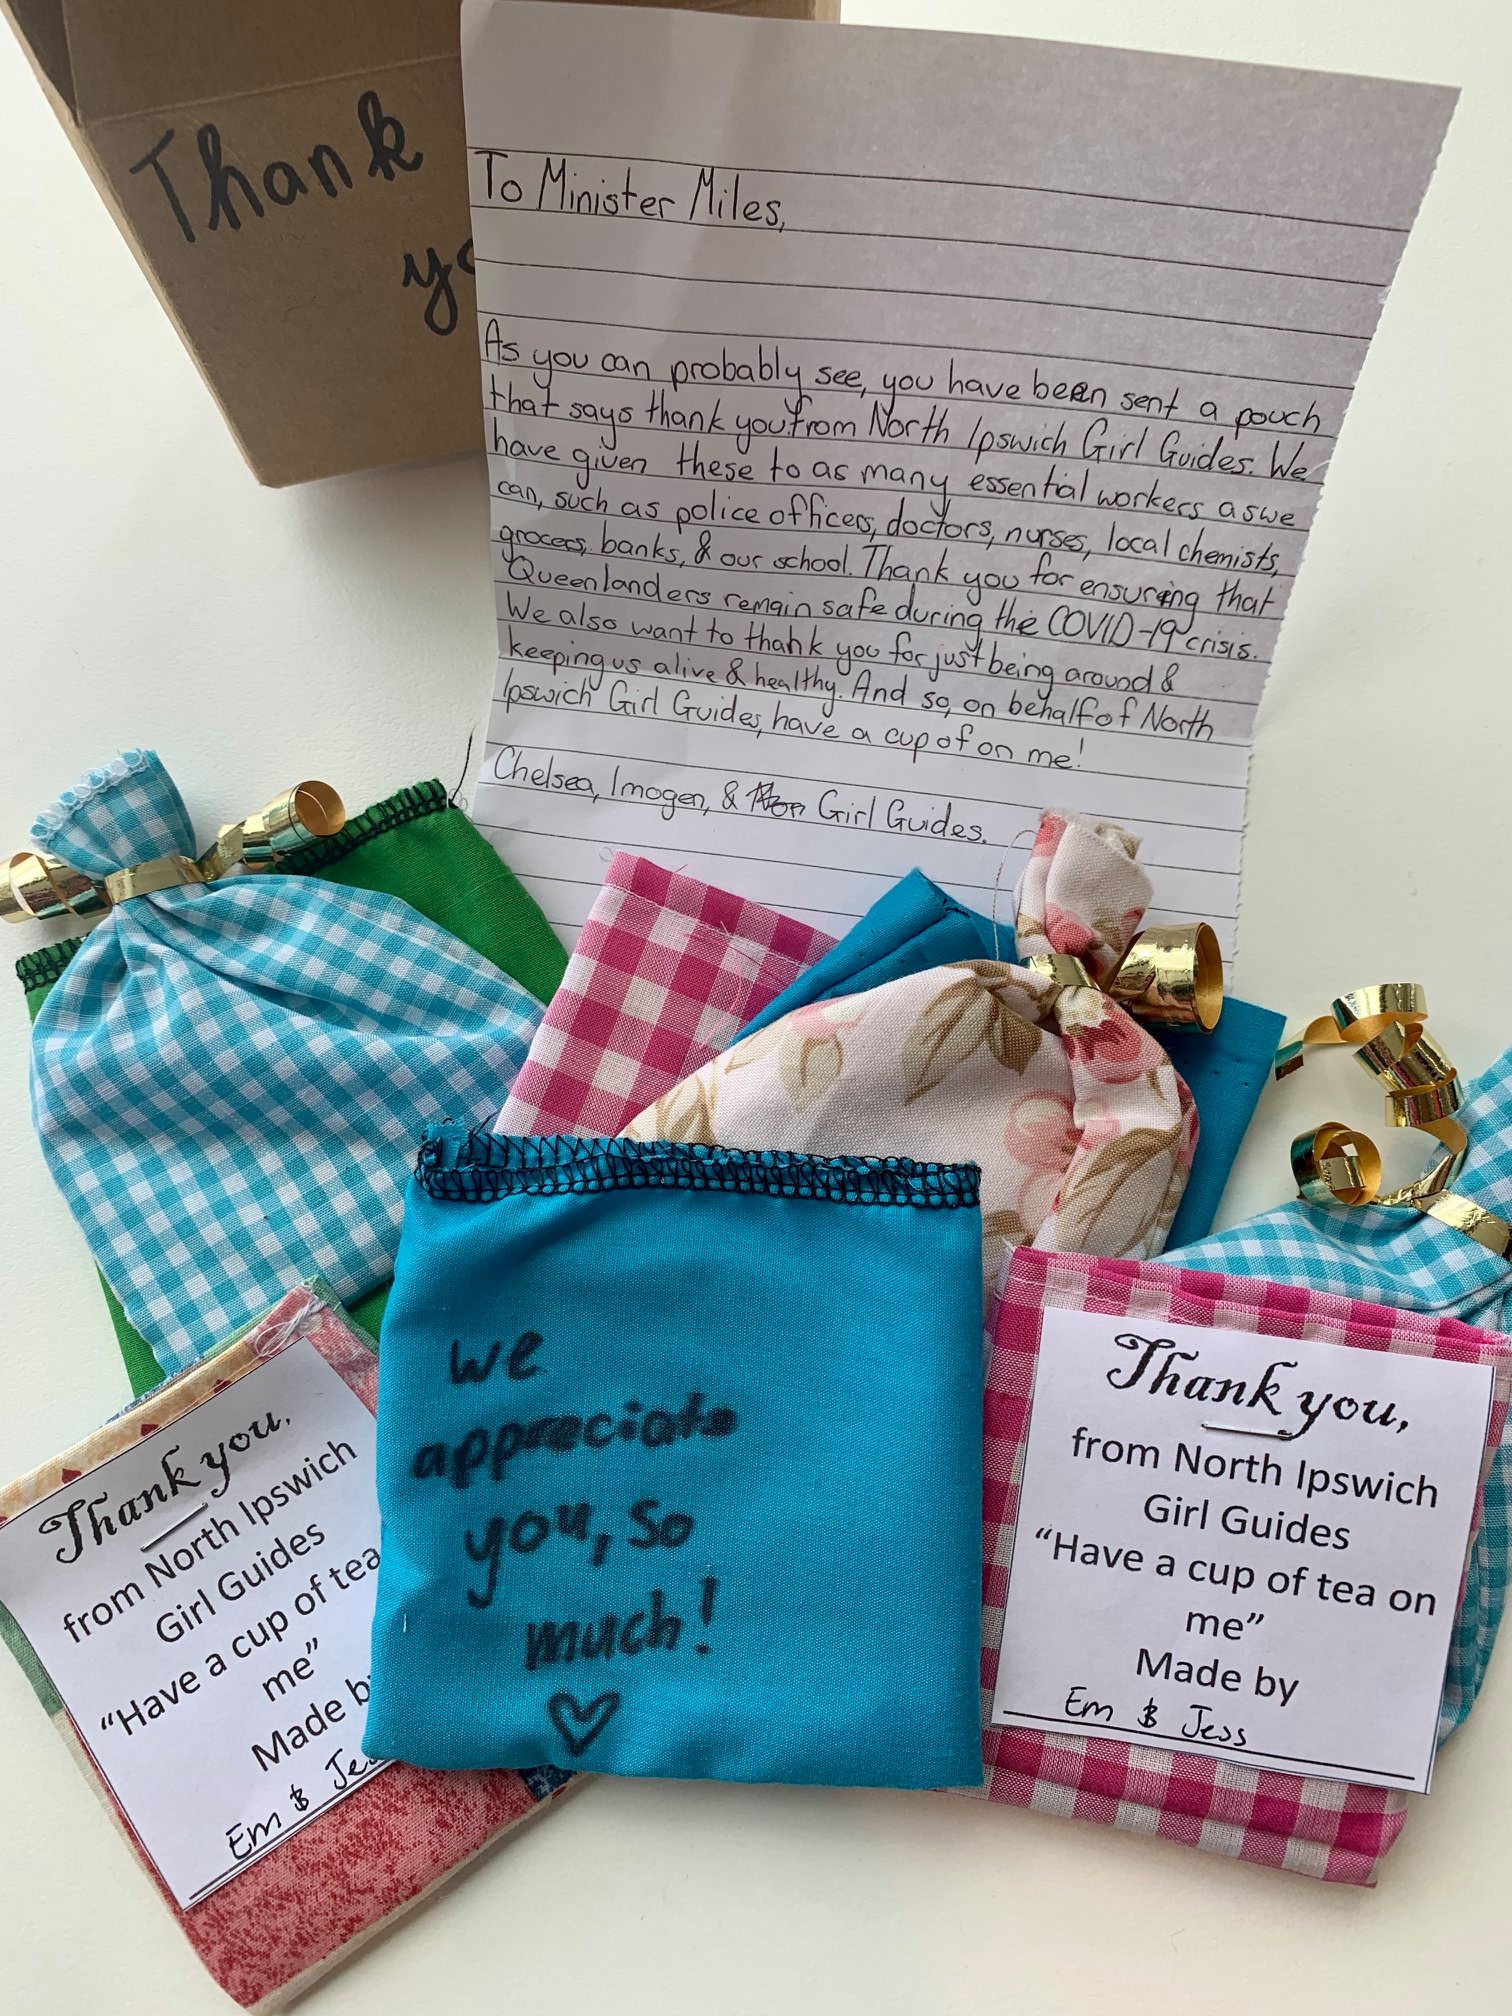 Thank
To Minister Miles,
As you can probably see, you have been sent a pouch
that says thank you from North Ipswich Girl Guides. We
have given these to as many essential workers as we
can, such as police officers, doctors, nurses, local chemists,
grocers, banks, & our school. Thank you for ensuring that
Queenlanders remain safe during the COVID-19 crisis.
We also want to thank you for just being around &
keeping us alive & healthy. And so, on behalf of North
Ipswich Girl Guides, have a cup of on me!
Chelsea, Imogen, & Girl Guides.
we
appreciate
you, so
much!
Thank you,
from North Ipswich
Girl Guides
"Have a cup of tea
me"
Made by
Em & Jess
Thank you,
from North Ipswich
Girl Guides
"Have a cup of tea on
me"
Made by
Em & Jess